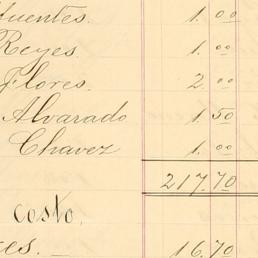 fuentes. 1.00
Reyes. 1.00
Flores. 2.00
Alvarado 1.50
Chavez 1.00
217.70
costo.
es. — 16.70